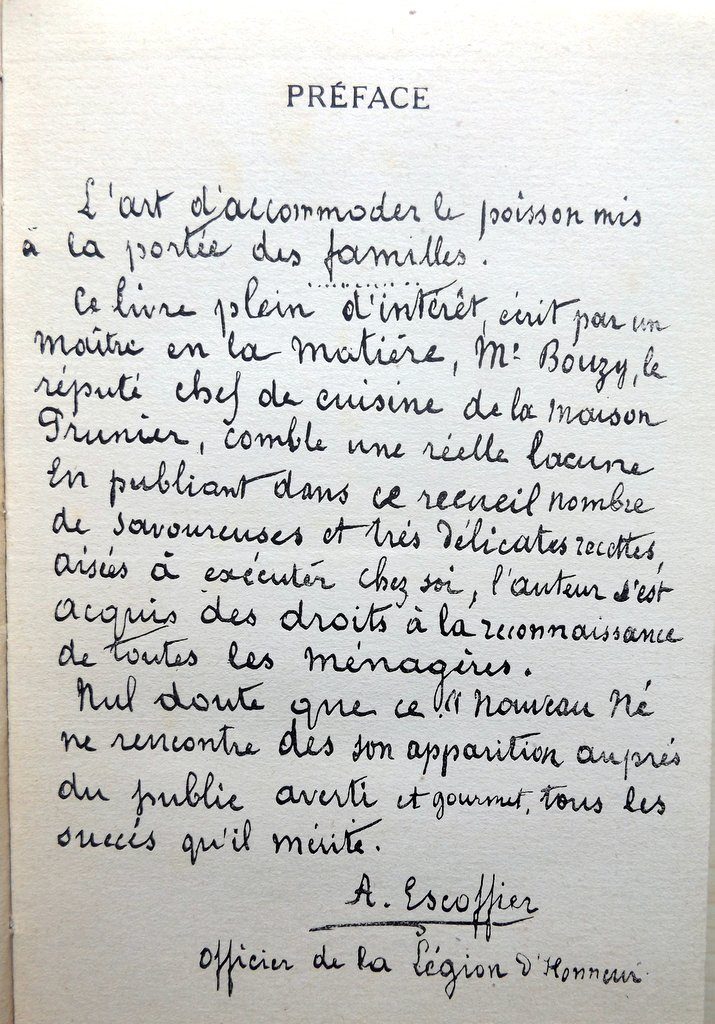 PRÉFACE
L'art d'accommoder le poisson mis
à la portée des familles.
Ce livre plein d'intérêt, écrit par un
maître en la matière, Mr Bouzy, le
réputé chef de cuisine de la maison
Prunier, comble une réelle lacune
En publiant dans ce recueil nombre
de savoureuses et très délicates recettes,
aisées à exécuter chez soi, l'auteur s'est
acquis des droits à la reconnaissance
de toutes les ménagères.
Nul doute que ce " nouveau né
ne rencontre dès son apparition auprès
du public averti et gourmet, tous les
succès qu'il mérite.
A. Escoffier
Officier de la Légion d'Honneur